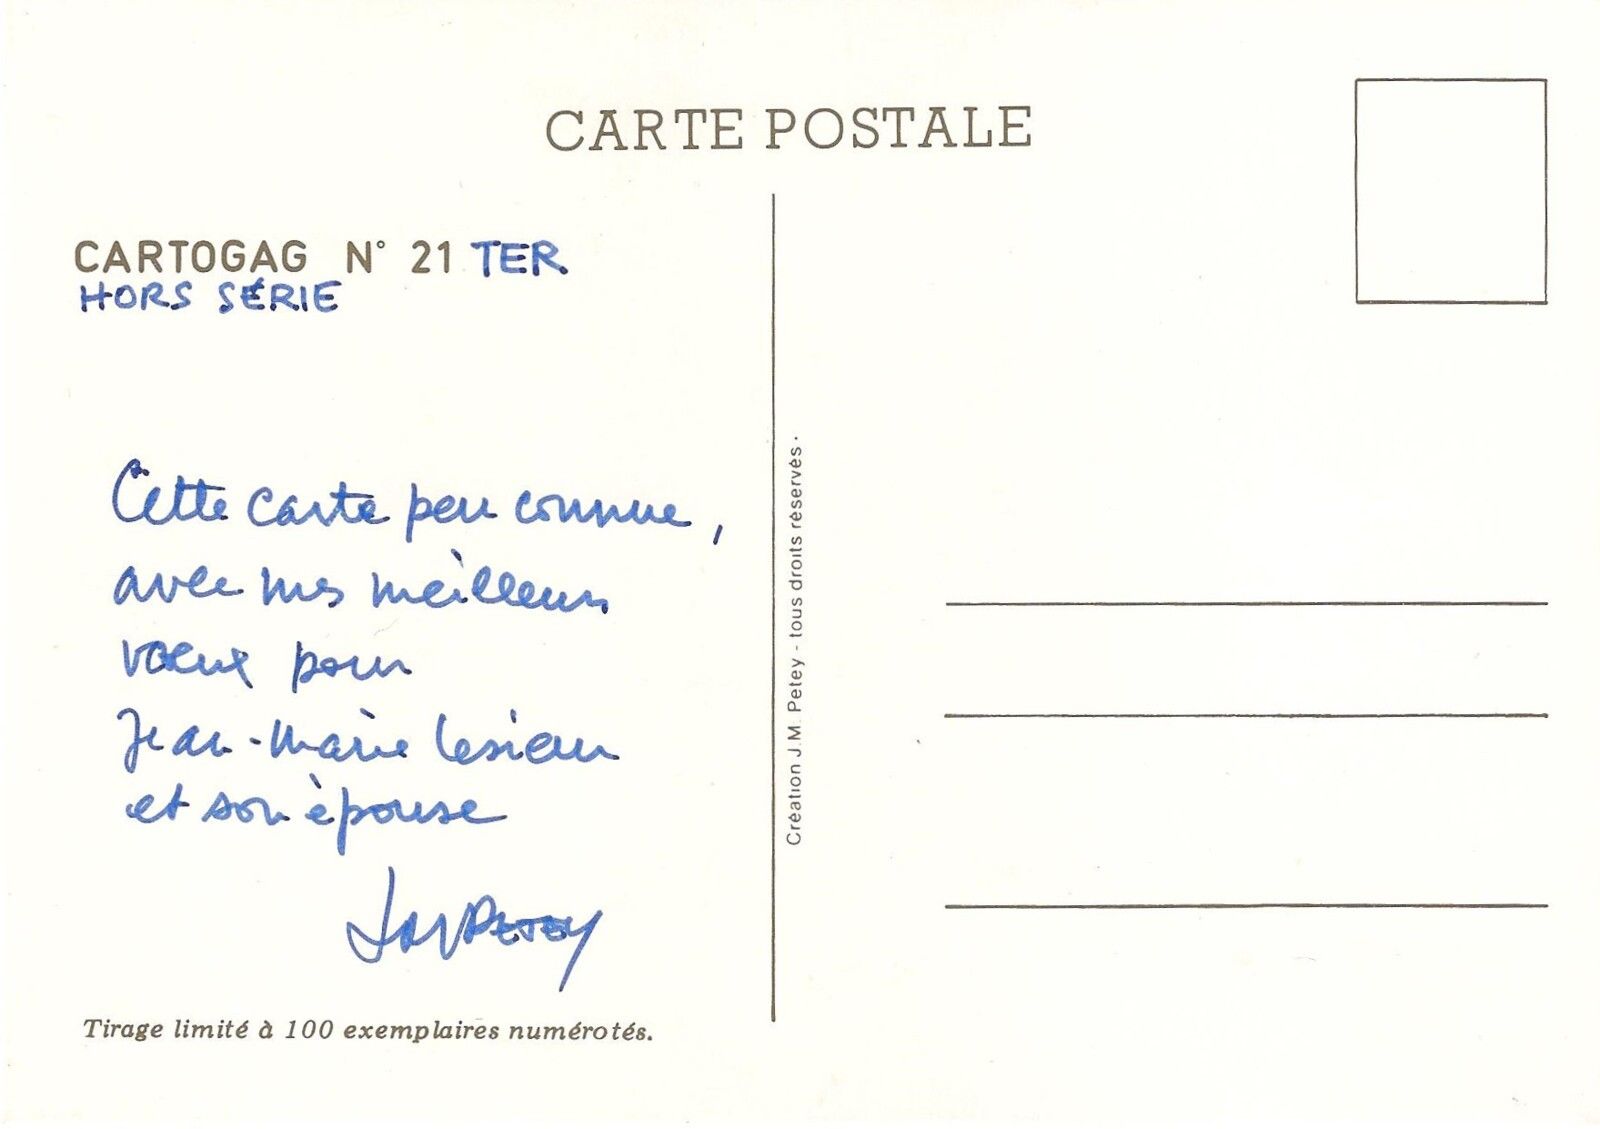 CARTE POSTALE
CARTOGAG N° 21 TER
HORS SÉRIE
Cette carte peu connue,
avec mes meilleurs
vœux pour
Jean-Marie Lesieur
et son épouse
JMPETEY
Tirage limité à 100 exemplaires numérotés.
Création J.M. Petey - tous droits réservés.